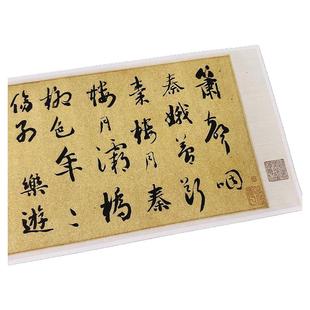 簫聲咽
秦娥夢斷
秦樓月秦
樓月灞橋
柳色年〻
傷別樂遊